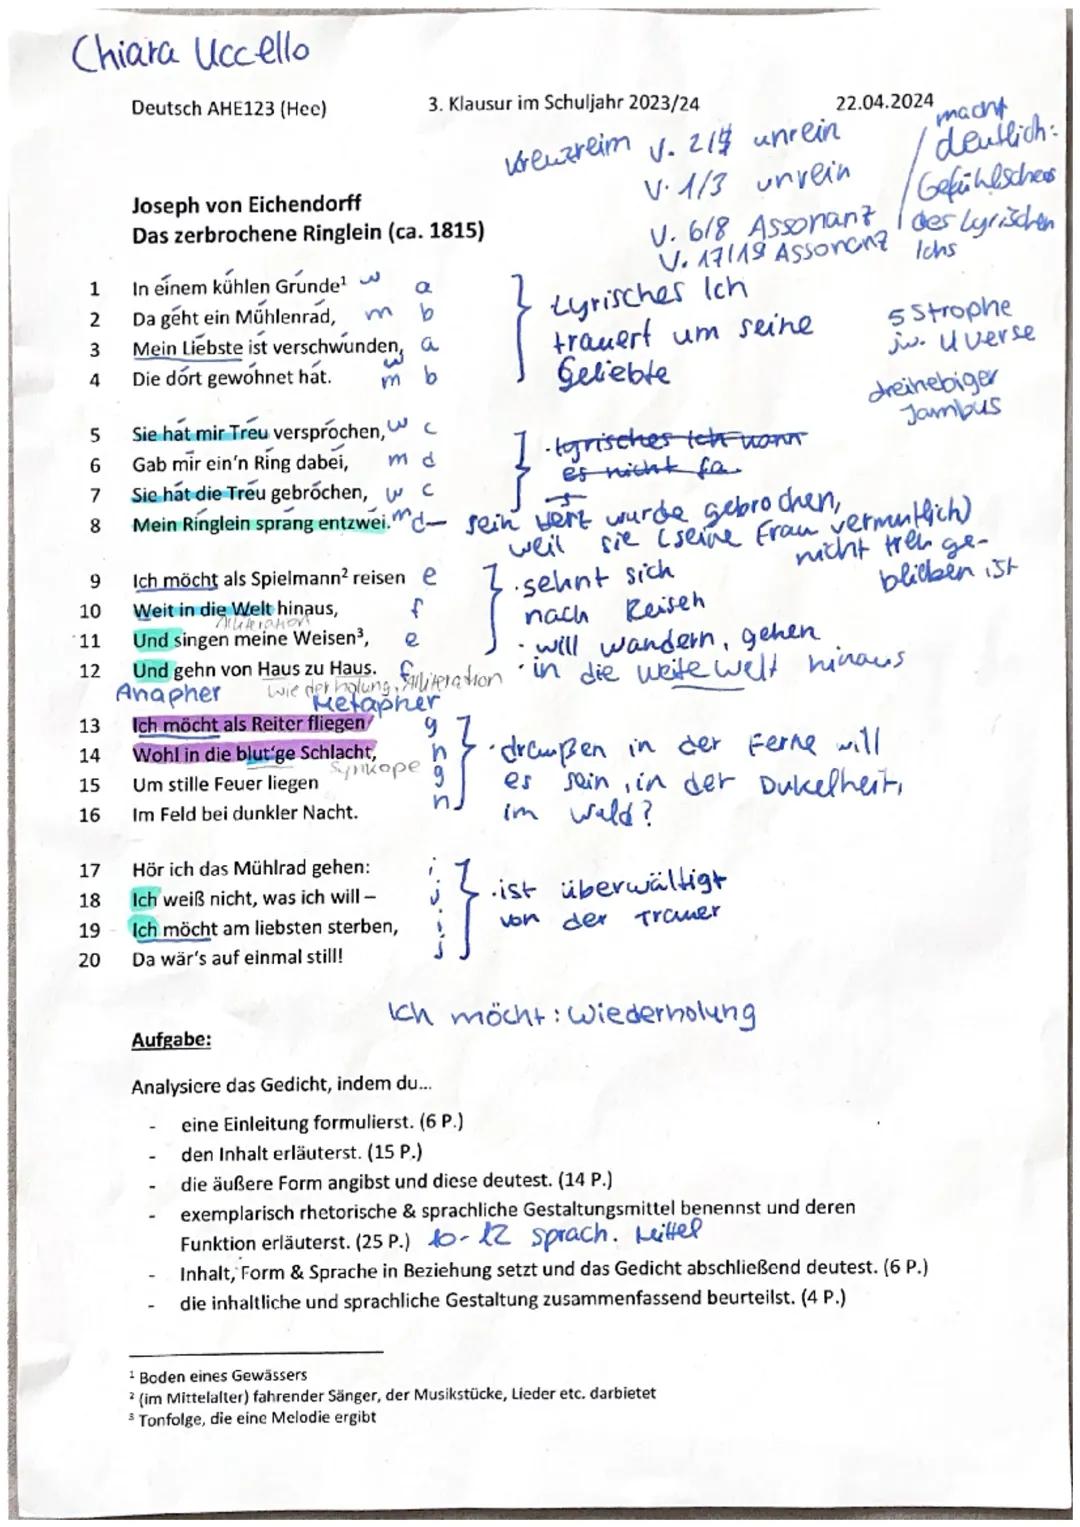 Chiara Uccello
Deutsch AHE123 (Hee)
3. Klausur im Schuljahr 2023/24
22.04.2024
Kreuzreim V. 2/4 unrein
V. 1/3 unrein
V. 6/8 Assonanz
V. 17/19 Assonanz
macht
deutlich:
Gefühlschaos
des Lyrischen
Ichs
Joseph von Eichendorff
Das zerbrochene Ringlein (ca. 1815)
1 In einem kühlen Grunde¹ w a
2 Da geht ein Mühlenrad, m b
3 Mein Liebste ist verschwunden, w a
4 Die dort gewohnet hat. m b
Lyrisches Ich
trauert um seine
Geliebte
5 Strophe
jw. 4 Verse
dreihebiger
Jambus
5 Sie hat mir Treu versprochen, w c
6 Gab mir ein'n Ring dabei, m d
7 Sie hat die Treu gebrochen, w c
8 Mein Ringlein sprang entzwei. m d
· lyrisches Ich kann
es nicht fa
sein Herz wurde gebrochen,
weil sie (seine Frau vermutlich)
nicht treu ge-
blieben ist
9 Ich möcht als Spielmann² reisen e
10 Weit in die Welt hinaus, f
Alliteration
11 Und singen meine Weisen³, e
12 Und gehn von Haus zu Haus. f
Anapher Wiederholung, Alliteration
· sehnt sich
nach Reisen
· will wandern, gehen
· in die weite Welt hinaus
Metapher
13 Ich möcht als Reiter fliegen g
14 Wohl in die blut'ge Schlacht, h
Synkope
15 Um stille Feuer liegen g
16 Im Feld bei dunkler Nacht. h
· draußen in der Ferne will
es sein, in der Dukelheit,
im Wald?
17 Hör ich das Mühlrad gehen: i
18 Ich weiß nicht, was ich will – j
19 Ich möcht am liebsten sterben, i
20 Da wär's auf einmal still! j
· ist überwältigt
von der Trauer
Ich möcht: Wiederholung
Aufgabe:
Analysiere das Gedicht, indem du...
- eine Einleitung formulierst. (6 P.)
- den Inhalt erläuterst. (15 P.)
- die äußere Form angibst und diese deutest. (14 P.)
- exemplarisch rhetorische & sprachliche Gestaltungsmittel benennst und deren
Funktion erläuterst. (25 P.) 10-12 sprach. Mittel
- Inhalt, Form & Sprache in Beziehung setzt und das Gedicht abschließend deutest. (6 P.)
- die inhaltliche und sprachliche Gestaltung zusammenfassend beurteilst. (4 P.)
¹ Boden eines Gewässers
² (im Mittelalter) fahrender Sänger, der Musikstücke, Lieder etc. darbietet
³ Tonfolge, die eine Melodie ergibt